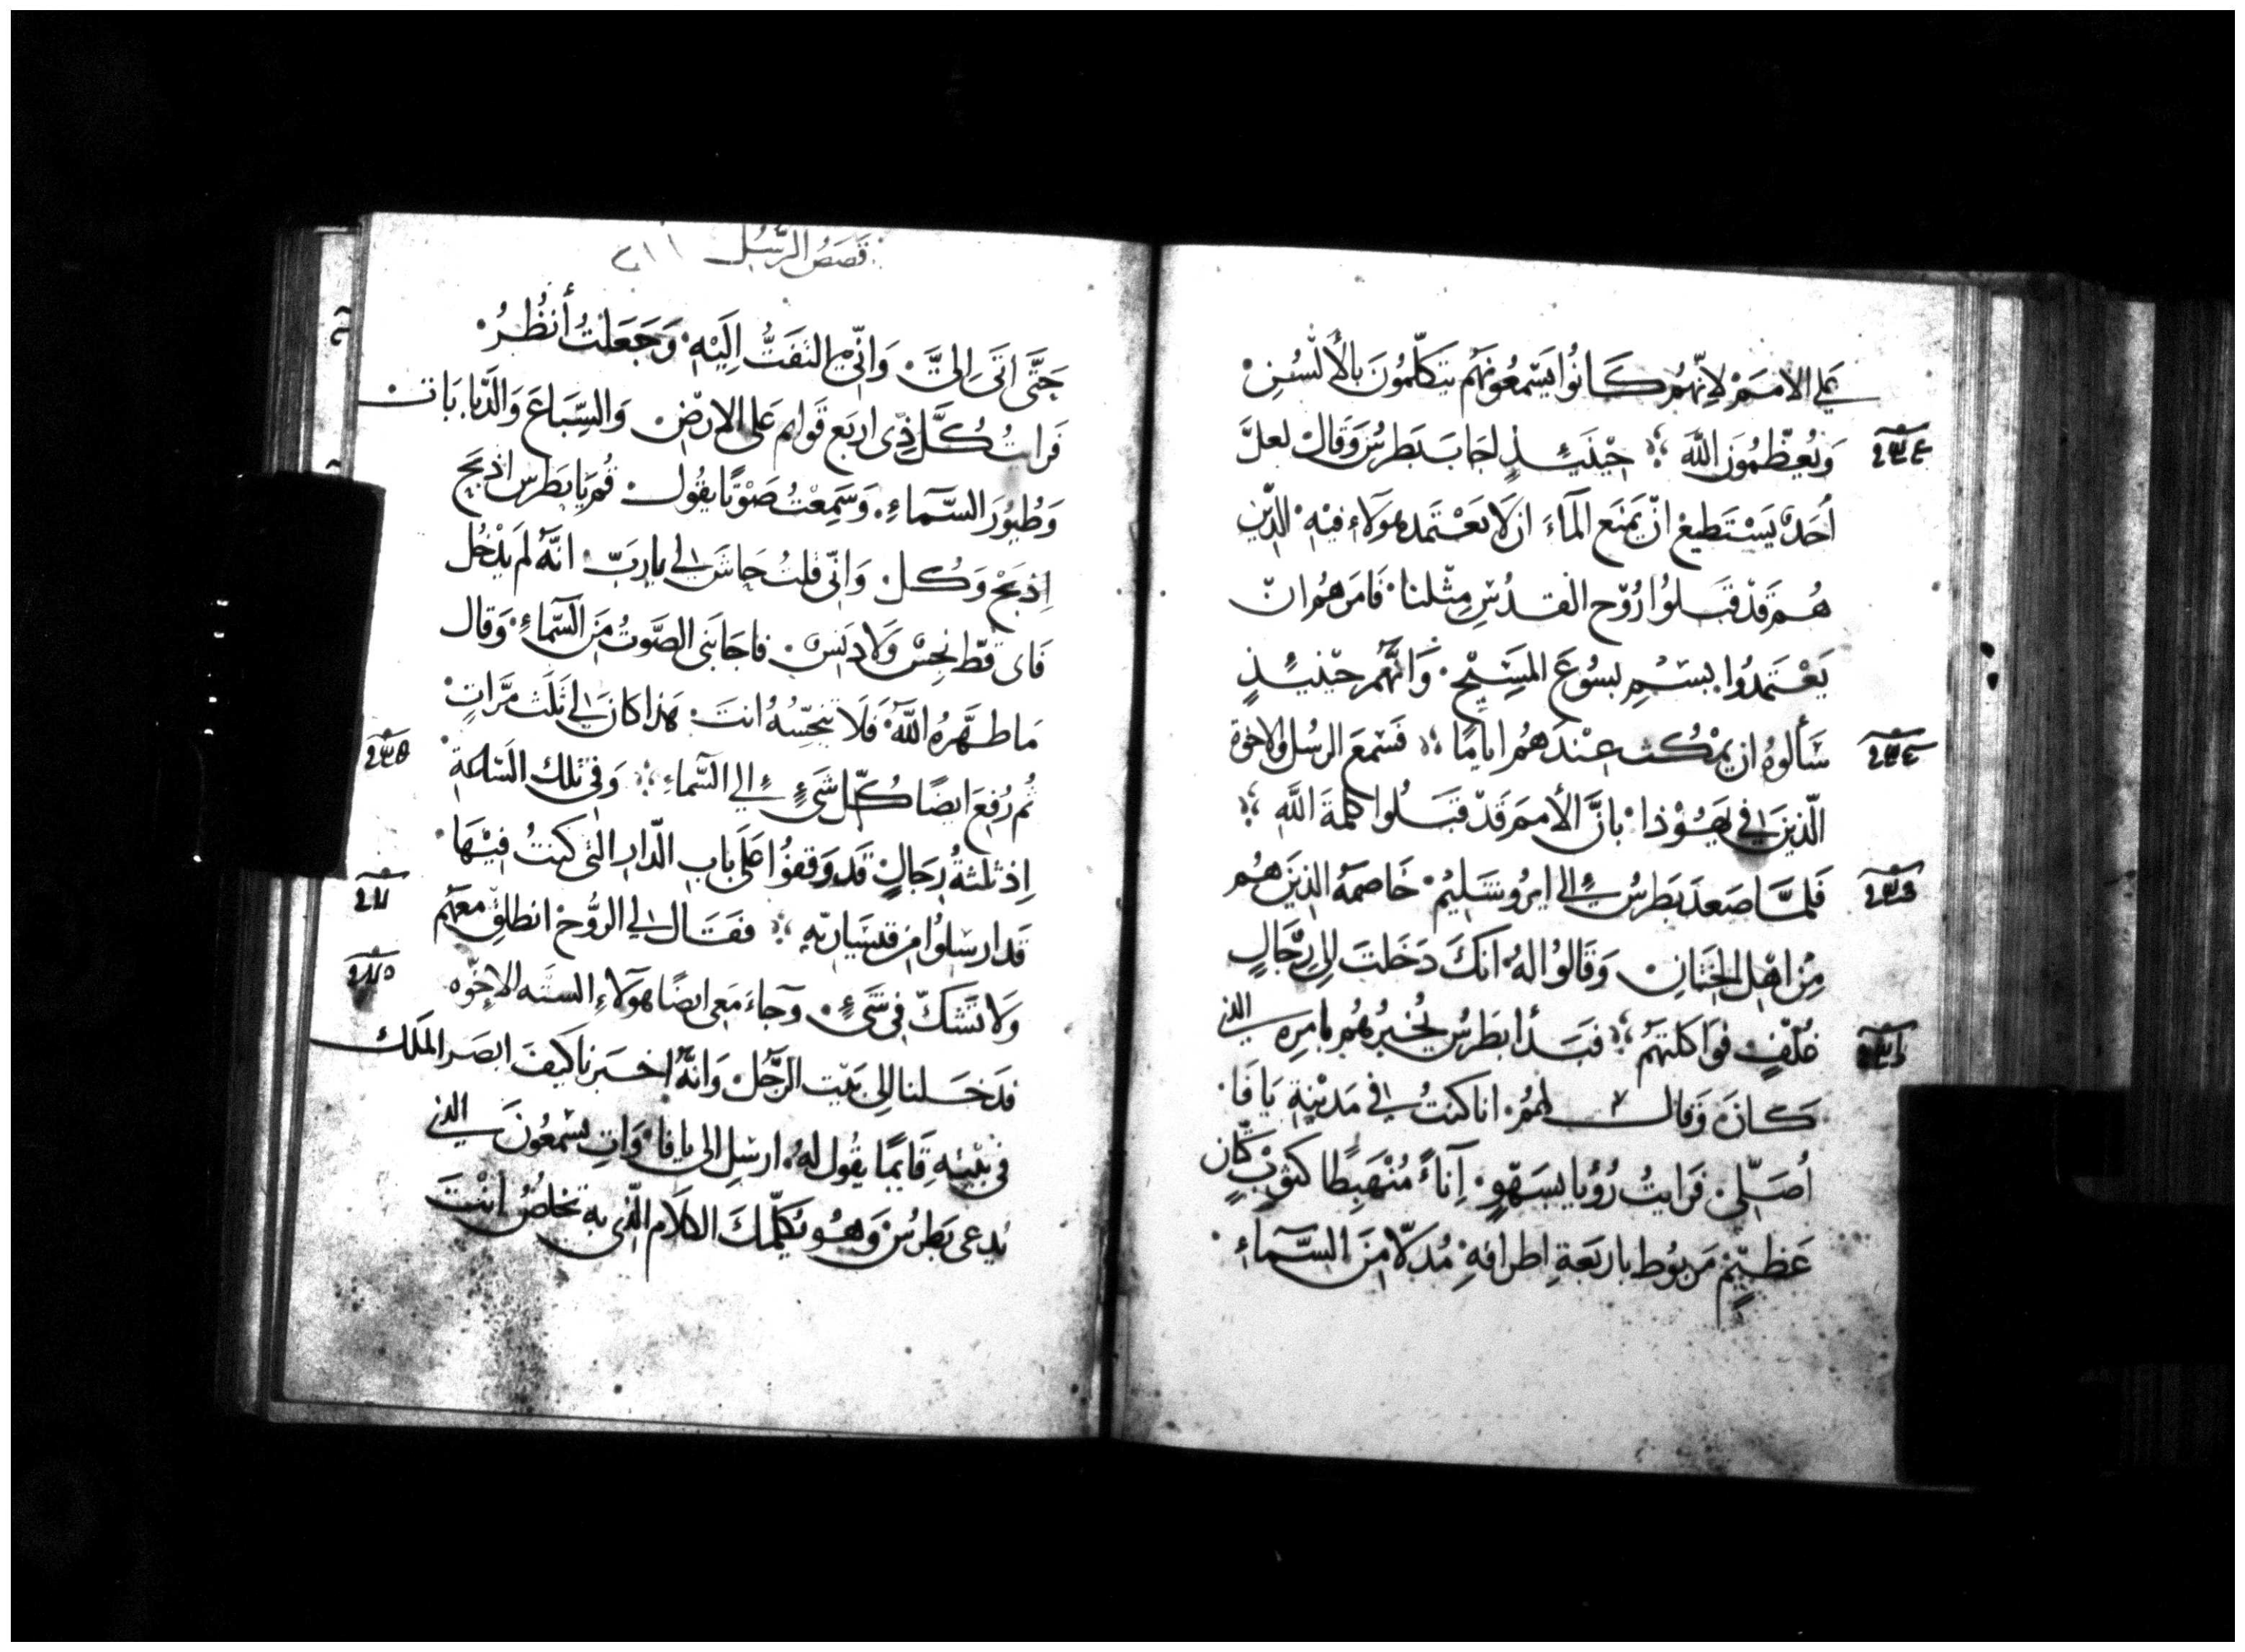 علي الامَمَ لانّهُم كَانُوا يَسْمعُونَهُم يتكَلّمُونَ بالألْسُنِ
وَيُعظّمُونَ اللّهَ ؛ حِيْنَيئذٍ اجَابَ بَطرسُ وَقالَ لعلَّ
أحَدٌ يَسْتَطيعُ انْ يَمنَع المآءَ ان لَا يَعْتَمد هولَاءِ فيْهِ الذّين
هُم قَدْ قبَلوُا رُوْح القدُسِ مِثْلنا فامرَهُم انْ
يَعْتَمدُوا بِسْمِ يسُوعَ المَسِيْحِ وَانّهُم حيْنيئذٍ
سَألوهُ ان يمْكُث عِنْدَهُم ايامًا ؛ فسْمعَ الرسُل والاخوة
الّذينَ في يَهُوْذا بانَّ الأممَ قَدْ قبَلُوا كلمةَ اللَّهِ ؛
فَلمَّا صَعدَ بَطرسُ الي ايروُشَليمُ خَاصمَهُ الذينَ هُم
مِنْ اهْل الختَانِ وَقَالوُا لهُ انكَ دَخَلتَ الي رِجَالٍ
غُلْفٍ فوَاكلتَهُمْ ؛ فبَدأ بَطرسُ يُخبرُهُم بامرِهِ الذي
كَانَ وَقال لَهُمُ انا كنتُ في مَدْيْنةِ يَافَا
أُصَلّي فَرَايتُ رُؤيا بسَهْوٍ إناءً مُنْهَبِطًا كثوْبِ كتّانٍ
عَظيْمٍ مَربوُط باربَعَةِ اطرافهِ مُدَلّا منَ السَّمآءِ
قَصَصُ الرّسُل ٢١١
حَتَّى اتَى اِليَّ وَانّي التفَتُّ اِلَيْهِ وَجَعَلتُ أنظُرُ
فَرايتُ كُلَّ ذي اربَع قَوايم عَلى الارْضِ والسِّبَاعَ وَالدَّبابَات
وَطُيوُرَ السَّمآءِ وَسَمِعْتُ صَوْتًا يقُولُ قُم يَا بَطرس اذْبَحْ
اِذبَحْ وَكُلْ وَانّي قلتُ حاشَ لي ياربّ انّهُ لَم يَدْخُل
فاي قطّ نجسٌ وَلَا دَنسٌ فاجابَني الصَّوتُ منَ السَّماءِ وَقال
مَا طهَّرَهُ اللّهُ فَلَا تنجّسُهُ انتَ هَذا كانَ الي ثَلَث مَرَّاتٍ
ثُم رُفِعَ ايضًا كُلّ شَيءٍ الي السَّماءِ ؛ وَفي تلكَ السَّاعةِ
اِذ ثلثةُ رجَالٍ قَد وَقفوُا عَلَى باب الدّار التي كنتُ فيْهَا
قَد ارسَلوُا من قيسَاريّهِ ؛ فقَال لي الرُّوحُ انطلقْ معَهُم
وَلَا تَشكّ في شَيءٍ وجاءَ مَعي ايضًا هوَلَاءِ الستَه الاخوَه
فدَخلنا الي بَيْت الرَّجُل وَانّهُ اخبَرَنا كيْفَ ابصَر الملَك
في بيْتهِ قَايمًا يقُول لهُ ارسِل الى يافا وَاتِ بسْمعُونَ الذي
يُدعى بَطرُس وَهُو يُكلّمكَ الكلَام الذي به تخلصُ انْتَ